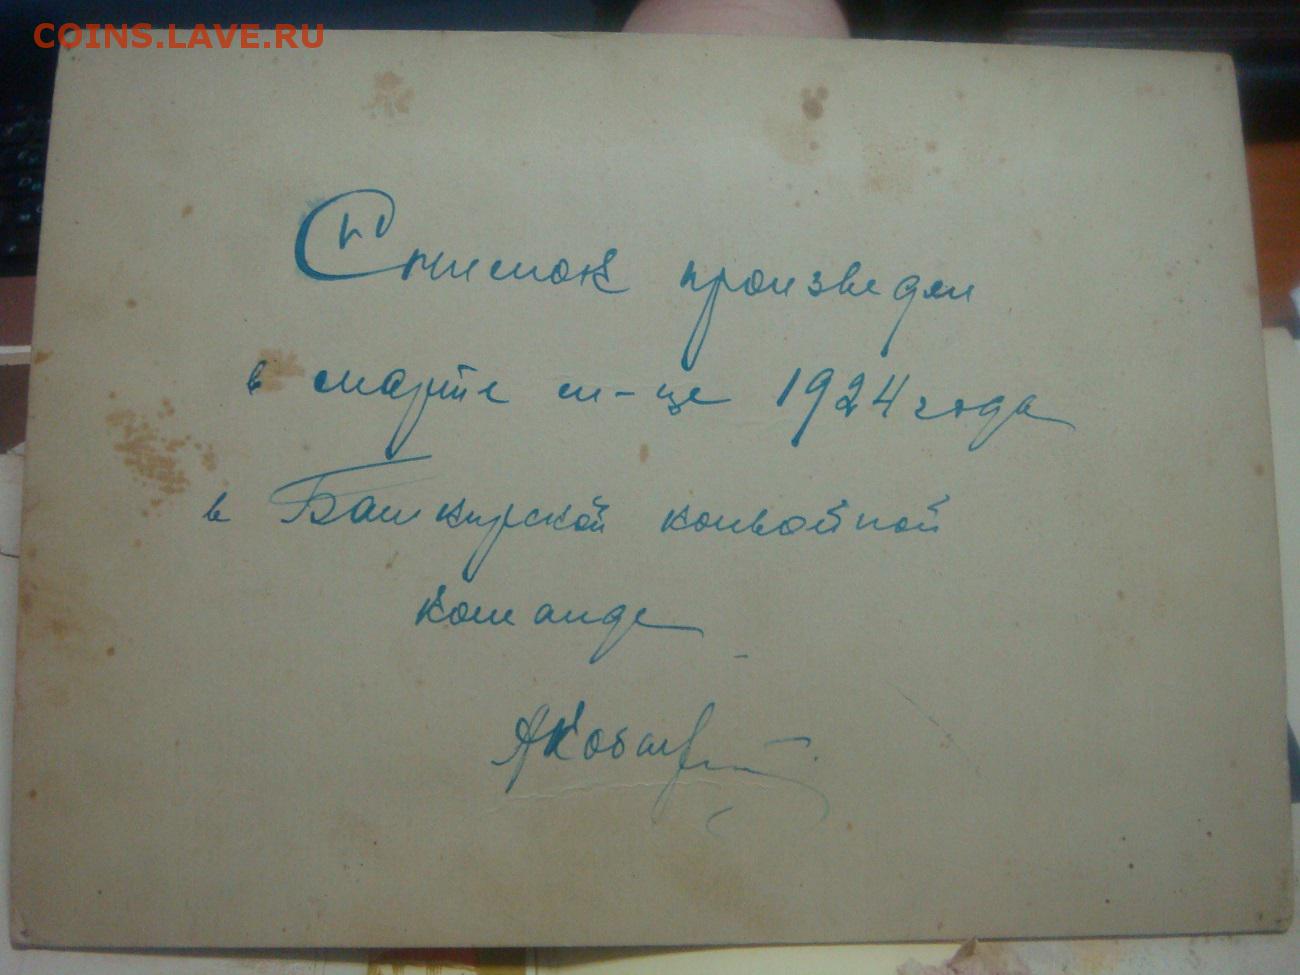 COINS.LAVE.RU
Снимок произведен
в марте м-це 1924 года
в Башкирской конвойной
команде